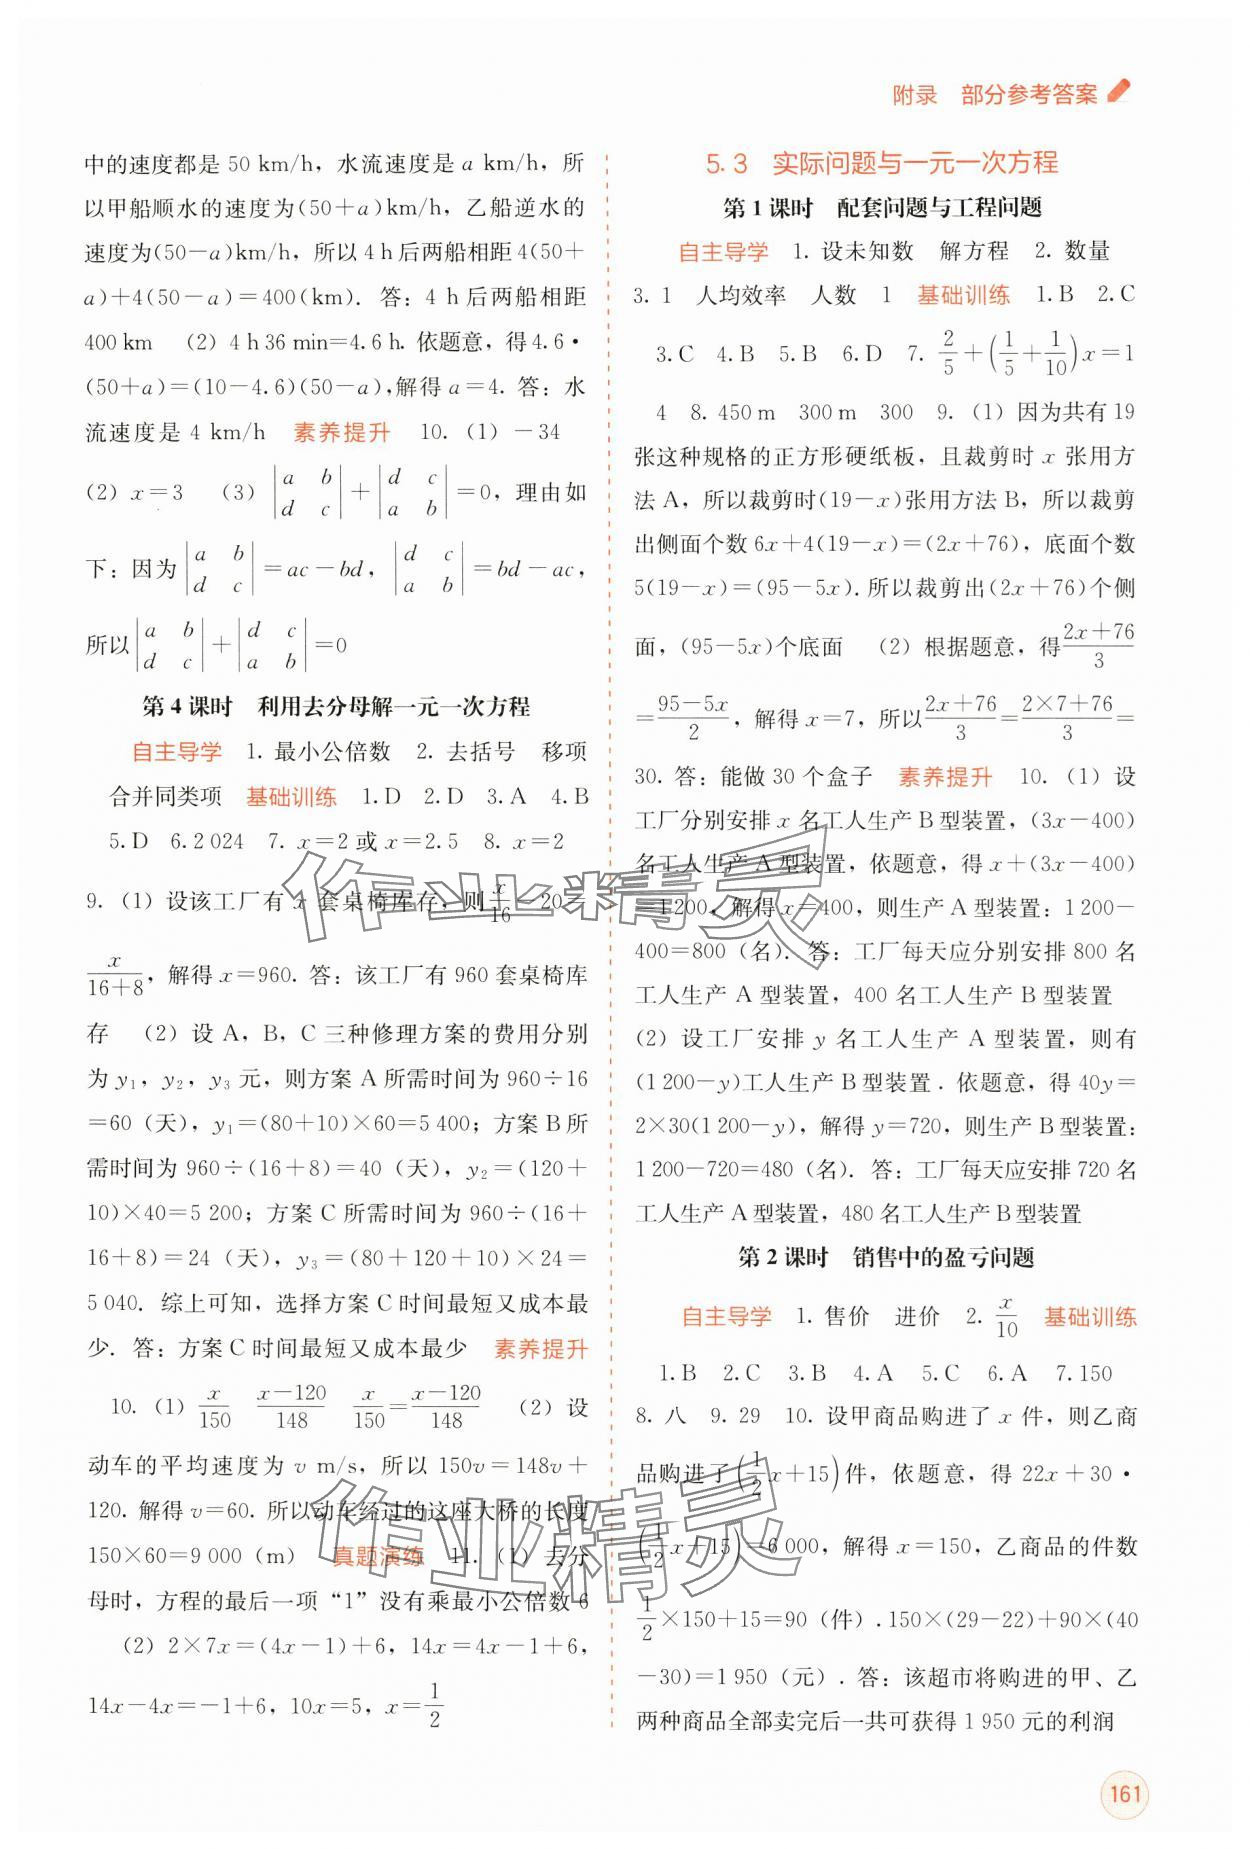 附录 部分参考答案
中的速度都是 50 km/h，水流速度是 a km/h，所
以甲船顺水的速度为(50+a)km/h，乙船逆水的
速度为(50-a)km/h，所以 4 h 后两船相距 4(50+
a)+4(50-a)=400(km). 答：4 h 后两船相距
400 km (2) 4 h 36 min=4.6 h. 依题意，得4.6·
(50+a)=(10-4.6)(50-a),解得 a=4. 答：水
流速度是 4 km/h 素养提升 10. (1) -34
(2) x=3 (3) |a b; d c|+|d c; a b|=0，理由如
下：因为|a b; d c|=ac-bd，|d c; a b|=bd-ac，
所以|a b; d c|+|d c; a b|=0
第 4 课时 利用去分母解一元一次方程
自主导学 1. 最小公倍数 2. 去括号 移项
合并同类项 基础训练 1.D 2.D 3.A 4.B
5.D 6.2 024 7. x=2 或 x=2.5 8. x=2
9. (1) 设该工厂有 x 套桌椅库存，则x/16-20=
x/(16+8)，解得 x=960. 答：该工厂有 960 套桌椅库
存 (2) 设 A，B，C 三种修理方案的费用分别
为 y₁，y₂，y₃ 元，则方案 A 所需时间为 960÷16
=60（天），y₁=(80+10)×60=5 400；方案 B 所
需时间为 960÷(16+8)=40（天），y₂=(120+
10)×40=5 200；方案 C 所需时间为 960÷(16+
16+8)=24（天），y₃=(80+120+10)×24=
5 040. 综上可知，选择方案 C 时间最短又成本最
少. 答：方案 C 时间最短又成本最少 素养提升
10. (1) x/150 (x-120)/148 x/150=(x-120)/148 (2) 设
动车的平均速度为 v m/s，所以 150v=148v+
120. 解得 v=60. 所以动车经过的这座大桥的长度
150×60=9 000（m） 真题演练 11. (1) 去分
母时，方程的最后一项“1”没有乘最小公倍数 6
(2) 2×7x=(4x-1)+6，14x=4x-1+6，
14x-4x=-1+6，10x=5，x=1/2
5.3 实际问题与一元一次方程
第 1 课时 配套问题与工程问题
自主导学 1. 设未知数 解方程 2. 数量
3. 1 人均效率 人数 1 基础训练 1.B 2.C
3.C 4.B 5.B 6.D 7. 2/5+(1/5+1/10)x=1
4 8. 450 m 300 m 300 9. (1) 因为共有 19
张这种规格的正方形硬纸板，且裁剪时 x 张用方
法 A，所以裁剪时(19-x)张用方法 B，所以裁剪
出侧面个数 6x+4(19-x)=(2x+76)，底面个数
5(19-x)=(95-5x).所以裁剪出(2x+76)个侧
面，(95-5x)个底面 (2) 根据题意，得(2x+76)/3
=(95-5x)/2，解得 x=7，所以(2x+76)/3=(2×7+76)/3=
30. 答：能做 30 个盒子 素养提升 10. (1) 设
工厂分别安排 x 名工人生产 B 型装置，(3x-400)
名工人生产 A 型装置，依题意，得 x+(3x-400)
=1 200，解得 x=400，则生产 A 型装置：1 200-
400=800（名）. 答：工厂每天应分别安排 800 名
工人生产 A 型装置，400 名工人生产 B 型装置
(2) 设工厂安排 y 名工人生产 A 型装置，则有
(1 200-y)工人生产 B 型装置. 依题意，得 40y=
2×30(1 200-y)，解得 y=720，则生产 B 型装置：
1 200-720=480（名）. 答：工厂每天应安排 720 名
工人生产 A 型装置，480 名工人生产 B 型装置
第 2 课时 销售中的盈亏问题
自主导学 1. 售价 进价 2. x/10 基础训练
1.B 2.C 3.B 4.A 5.C 6.A 7.150
8. 八 9. 29 10. 设甲商品购进了 x 件，则乙商
品购进了(1/2x+15)件，依题意，得 22x+30·
(1/2x+15)=6 000，解得 x=150，乙商品的件数
1/2×150+15=90（件）.150×(29-22)+90×(40
-30)=1 950（元）. 答：该超市将购进的甲、乙
两种商品全部卖完后一共可获得 1 950 元的利润
作业精灵
作业精灵
161